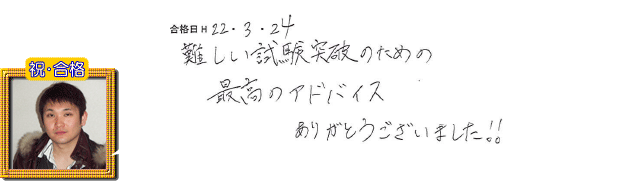 合格日 H 22・3・24
難しい試験突破のための
最高のアドバイス
ありがとうございました!!
祝・合格